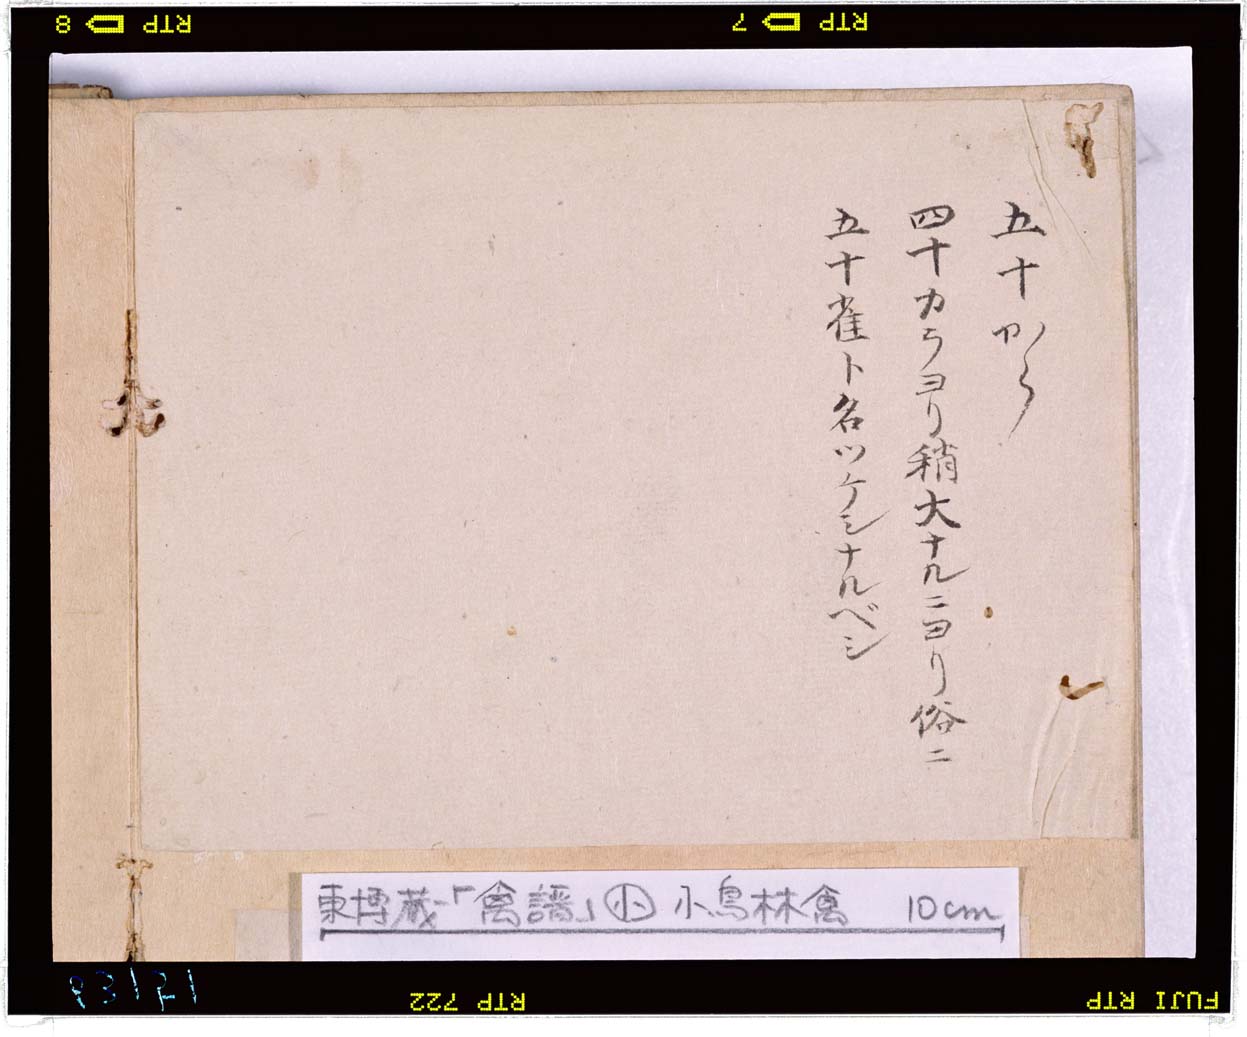 五十から
四十カラヨリ稍大ナルニヨリ俗ニ
五十雀ト名ツケシナルベシ
東博蔵-「禽譜」㊥小鳥林禽 10cm
RTP 7
RTP 8
RTP 722
FUJI RTP